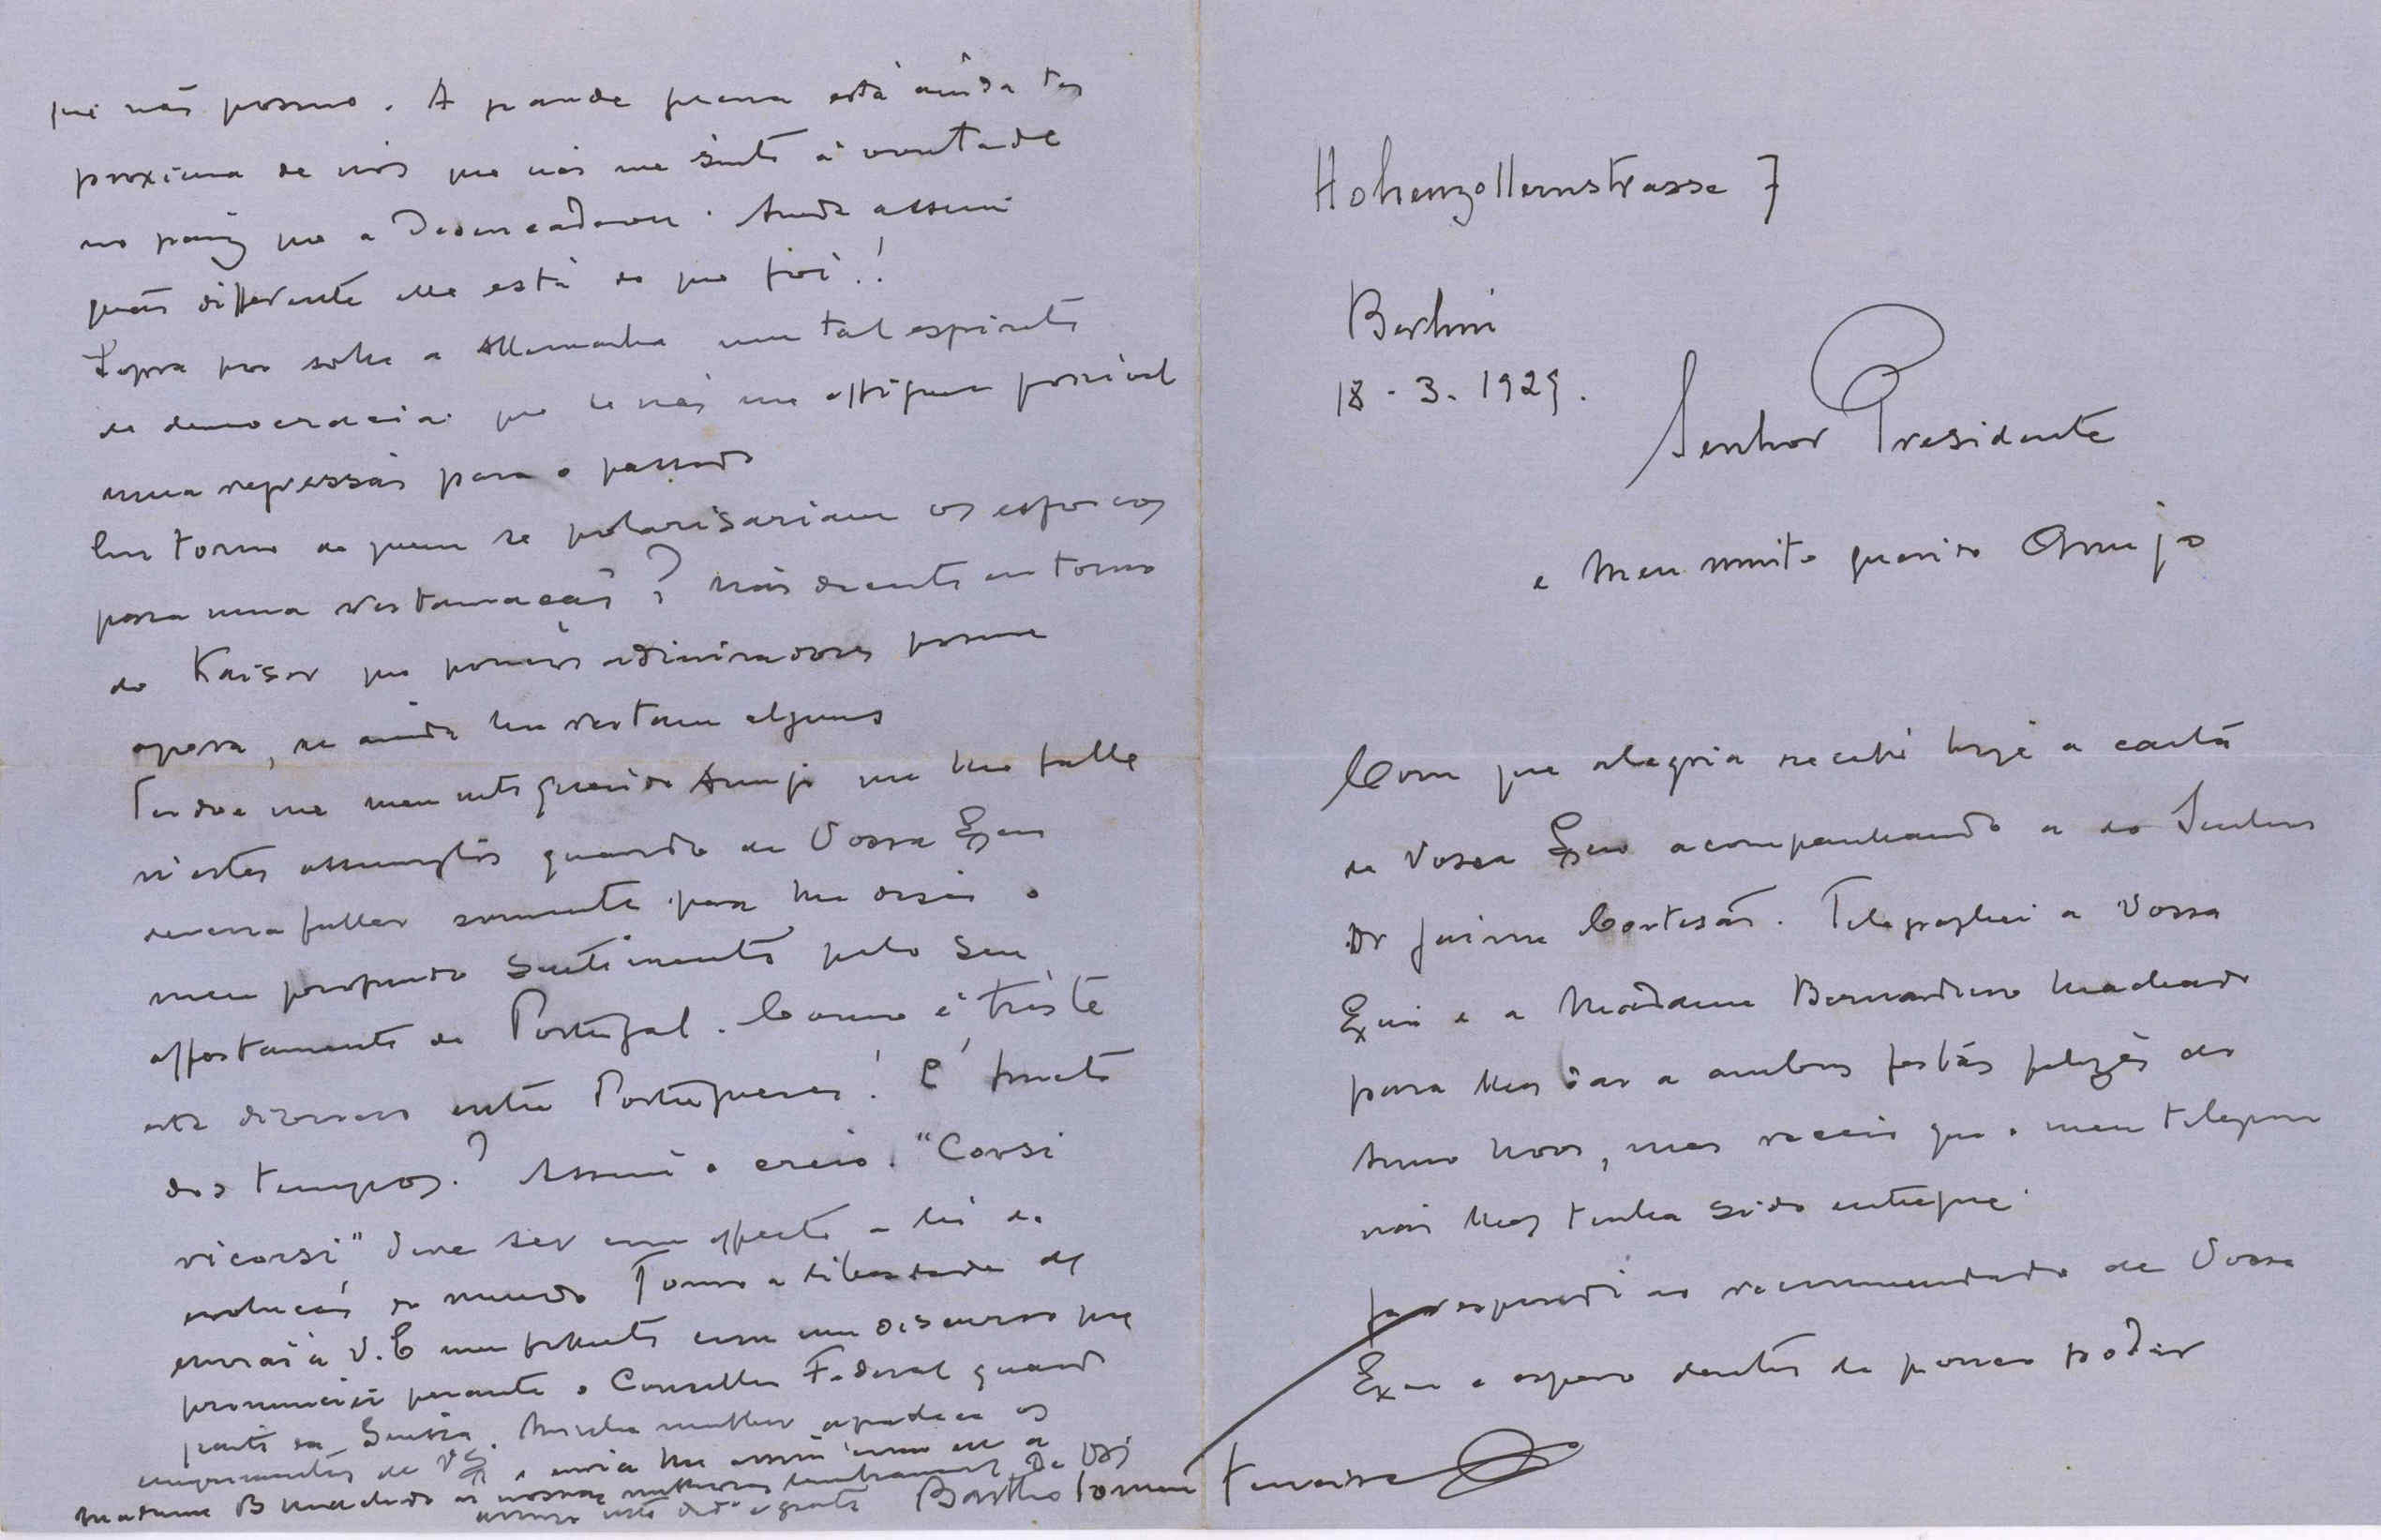 Hohenzollernstrasse 7
Berlim
18 - 3. 1929.
Senhor Presidente
e Meu muito querido Amigo
Com que alegria recebi hoje a carta
de Vossa Exª acompanhando a do Senhor
Dr Jaime Cortesão. Telegraphei a Vossa
Exª e a Madame Bernardino Machado
para lhes dar a ambos festas felizes do
Anno Novo, mas receio que o meu telegrama
não lhes tenha sido entregue.
Ja respondi ao recommendado de Vossa
Exª e espero dentro de pouco poder
que não possuo. A grande guerra está ainda tão
proxima de nós que não me sinto á vontade
no paiz que a desencadeou. Ainda assim
quão differente elle está do que foi!
Sopra por sobre a Allemanha um tal espirito
de democracia que se não me affigura possivel
uma regressão para o passado
Em torno de quem se polarisariam os esforços
para uma restauração? Não decerto em torno
do Kaiser que poucos admiradores possue
agora, se ainda lhe restam alguns
Perdoe me meu mto querido Amigo que lhe falle
n'estes assumptos quando a Vossa Exª
devera fallar somente para lhe dizer o
meu profundo sentimento pelo seu
affastamento de Portugal. Como é triste
esta divisão entre Portuguezes! É fructo
dos tempos? Assim o creio. "Corsi
ricorsi" deve ser com effeito a lei da
evolução do mundo Tomo a liberdade de
enviar a V. E um folheto com um discurso que
pronunciei perante o Conselho Federal quando
parti da Suissa. Minha mulher agradece os
cumprimentos de V Ex e envia lhe assim como eu a
Madame B Machado as nossas melhores lembranças De VEx
amigo mto dedº e grato Bartholomeu Ferreira